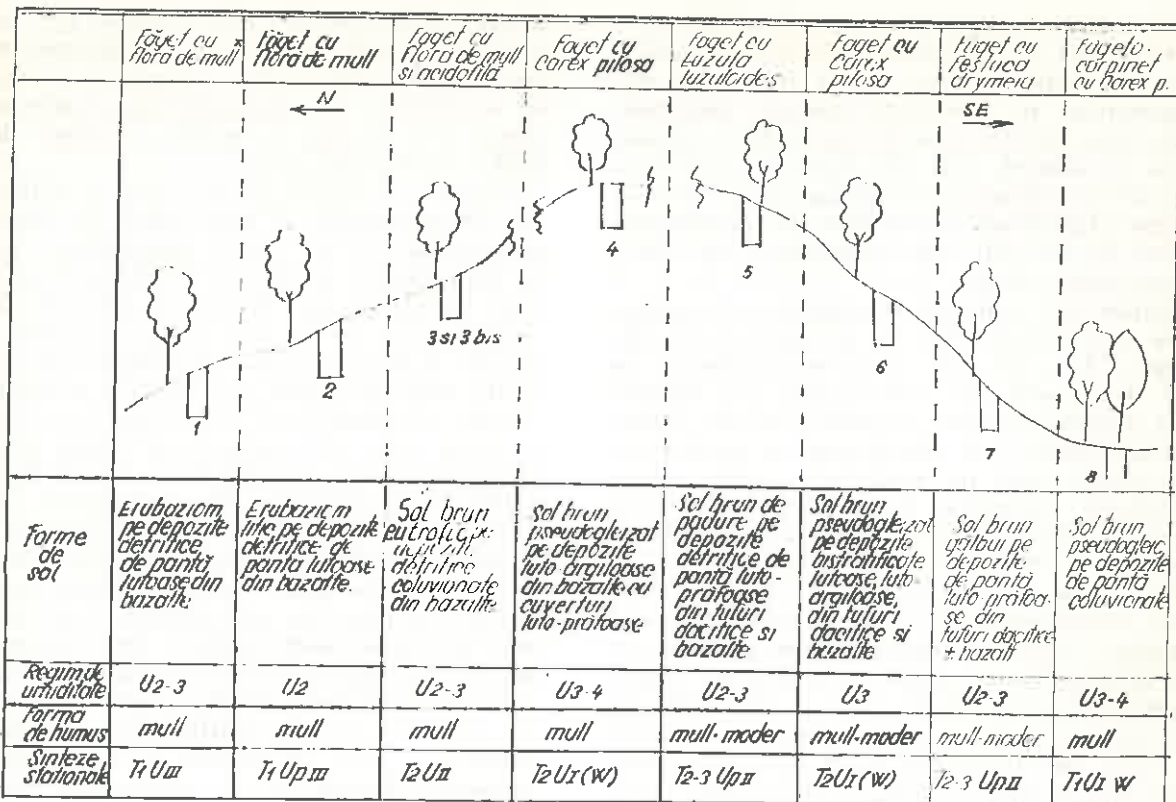 Făget cu *
flora de mull
Făget cu
flora de mull
Făget cu
flora de mull
si acidofilă
Faget cu
carex pilosa
Faget cu
Luzula
luzuloides
Faget cu
Carex
pilosa
Făget cu
Festuca
drymeia
Făgeto-
cărpinet
cu Carex p.
N
SE
1
2
3 si 3 bis
4
5
6
7
8
Forme
de
sol
Erubaziom
pe depozite
detritice
de pantă
lutoase din
bazalte
litic pe depozite
detritice de
panta lutoase
din bazalte.
Sol brun
eutrofic pe
depozite
detritice
coluvionate
din bazalte
Sol brun
pseudogleizat
pe depozite
luto argiloase
din bazalte cu
cuverturi
luto-prăfoase
Sol brun de
padure pe
depozite
detritice de
pantă luto-
prăfoase
din tufuri
dacitice si
bazalte
Sol brun
pseudogleizat
pe depozite
bistratificate
lutoase, luto
argiloase,
din tufuri
dacitice si
bazalte
Sol brun
gălbui pe
depozite
de pantă
luto-prăfoa-
se din
tufuri dacitice
± bazalt
Sol brun
pseudogleic
pe depozite
de pantă
coluvionate
Regim de
umiditate
U2-3
U2
U2-3
U3-4
U2-3
U3
U2-3
U3-4
Forma
de humus
mull
mull
mull
mull
mull-moder
mull-moder
mull-moder
mull
Sinteze
stationale
T1 UIII
T1 Up III
T2 UII
T2 UI (W)
T2-3 Up II
T2 UI (W)
T2-3 Up II
T1 UI W